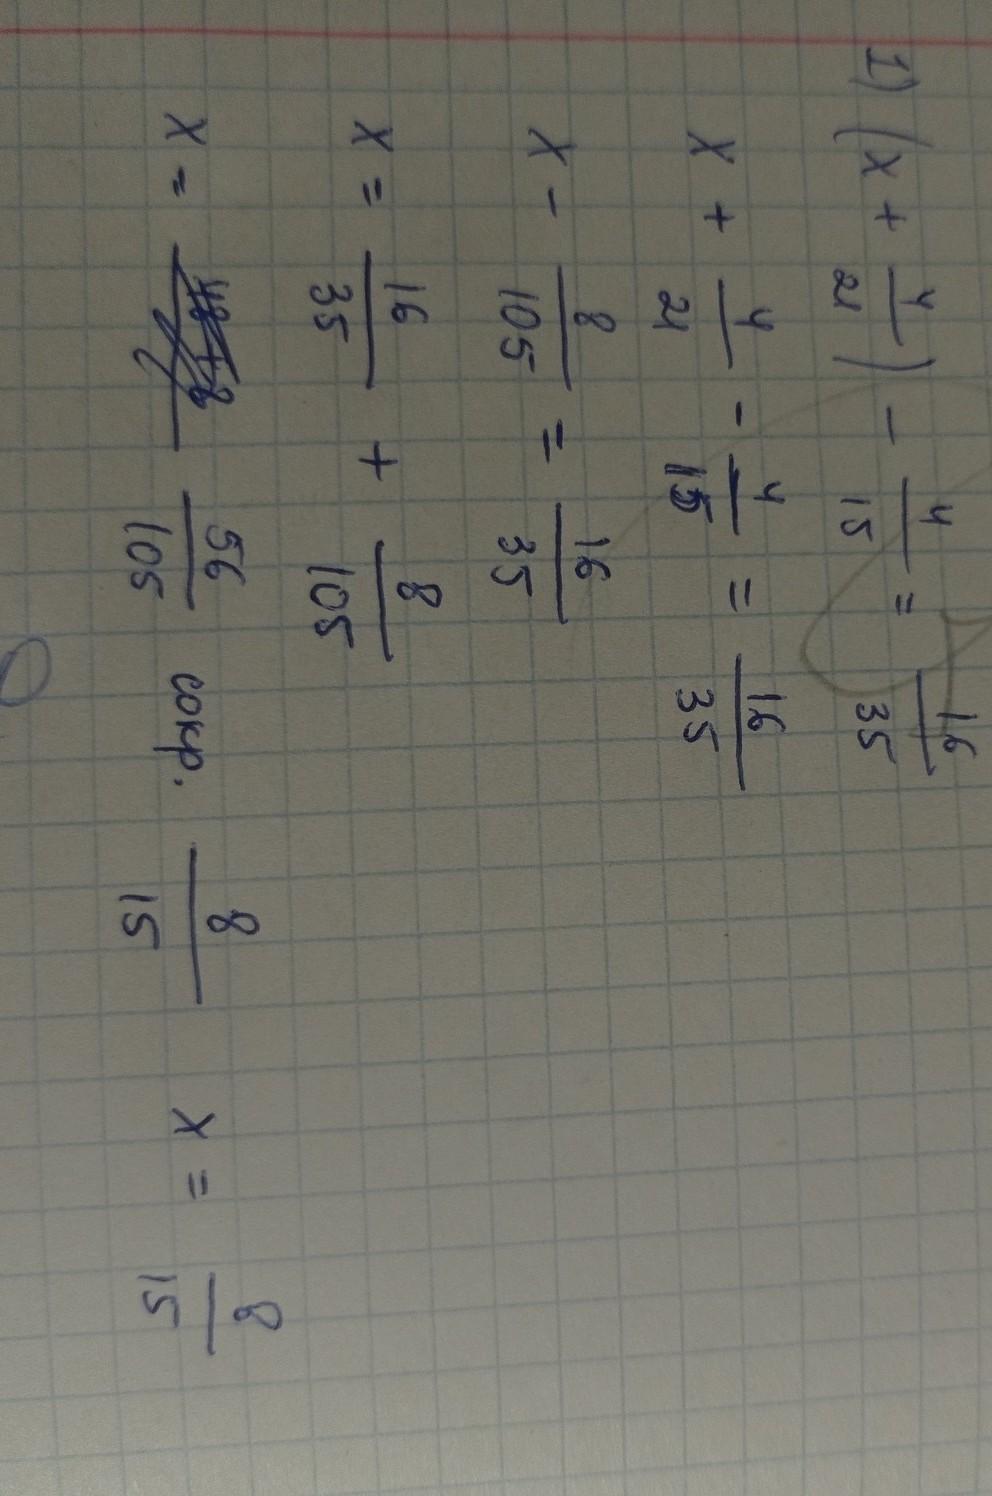 1) (x + 4/21) - 4/15 = 16/35
x + 4/21 - 4/15 = 16/35
x - 8/105 = 16/35
x = 16/35 + 8/105
x = 56/105 сокр. 8/15 x = 8/15